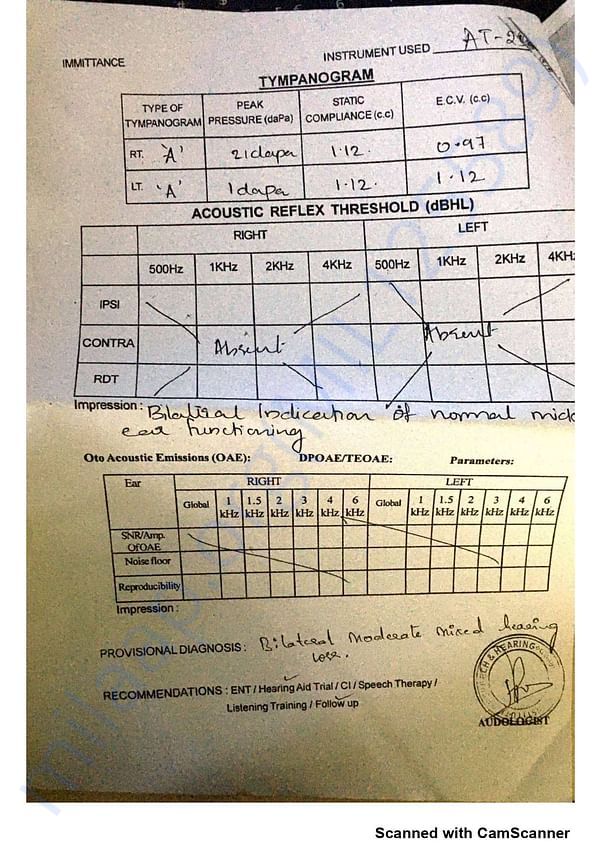 IMMITTANCE
INSTRUMENT USED AT-2
TYMPANOGRAM
TYPE OF TYMPANOGRAM PEAK PRESSURE (daPa) STATIC COMPLIANCE (c.c) E.C.V. (c.c)
RT. 'A' 21dapa 1.12. 0.97
LT. 'A' 1dapa 1.12. 1.12
ACOUSTIC REFLEX THRESHOLD (dBHL)
RIGHT LEFT
500Hz 1KHz 2KHz 4KHz 500Hz 1KHz 2KHz 4KHz
IPSI
CONTRA Absent Absent
RDT
Impression : Bilateral Indication of normal midd
ear functioning
Oto Acoustic Emissions (OAE): DPOAE/TEOAE: Parameters:
Ear RIGHT LEFT
Global 1 kHz 1.5 kHz 2 kHz 3 kHz 4 kHz 6 kHz Global 1 kHz 1.5 kHz 2 kHz 3 kHz 4 kHz 6 kHz
SNR/Amp. Of OAE
Noise floor
Reproducibility
Impression :
PROVISIONAL DIAGNOSIS : Bilateral Moderate mixed hearing
loss.
RECOMMENDATIONS : ENT / Hearing Aid Trial / CI / Speech Therapy /
Listening Training / Follow up
AUDOLOGIST
Scanned with CamScanner